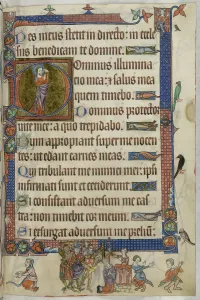 Pes meus stetit in directo: in eccle
siis benedicam te domine.
Dominus illumina
tio mea: & salus mea
quem timebo.
Dominus protector
uite mee: a quo trepidabo.
Dum appropiant super me nocen
tes: ut edant carnes meas.
Qui tribulant me inimici mei: ipsi
infirmati sunt et ceciderunt.
Si consistant aduersum me cas
tra: non timebit cor meum.
Si exsurgat aduersum me prelium: